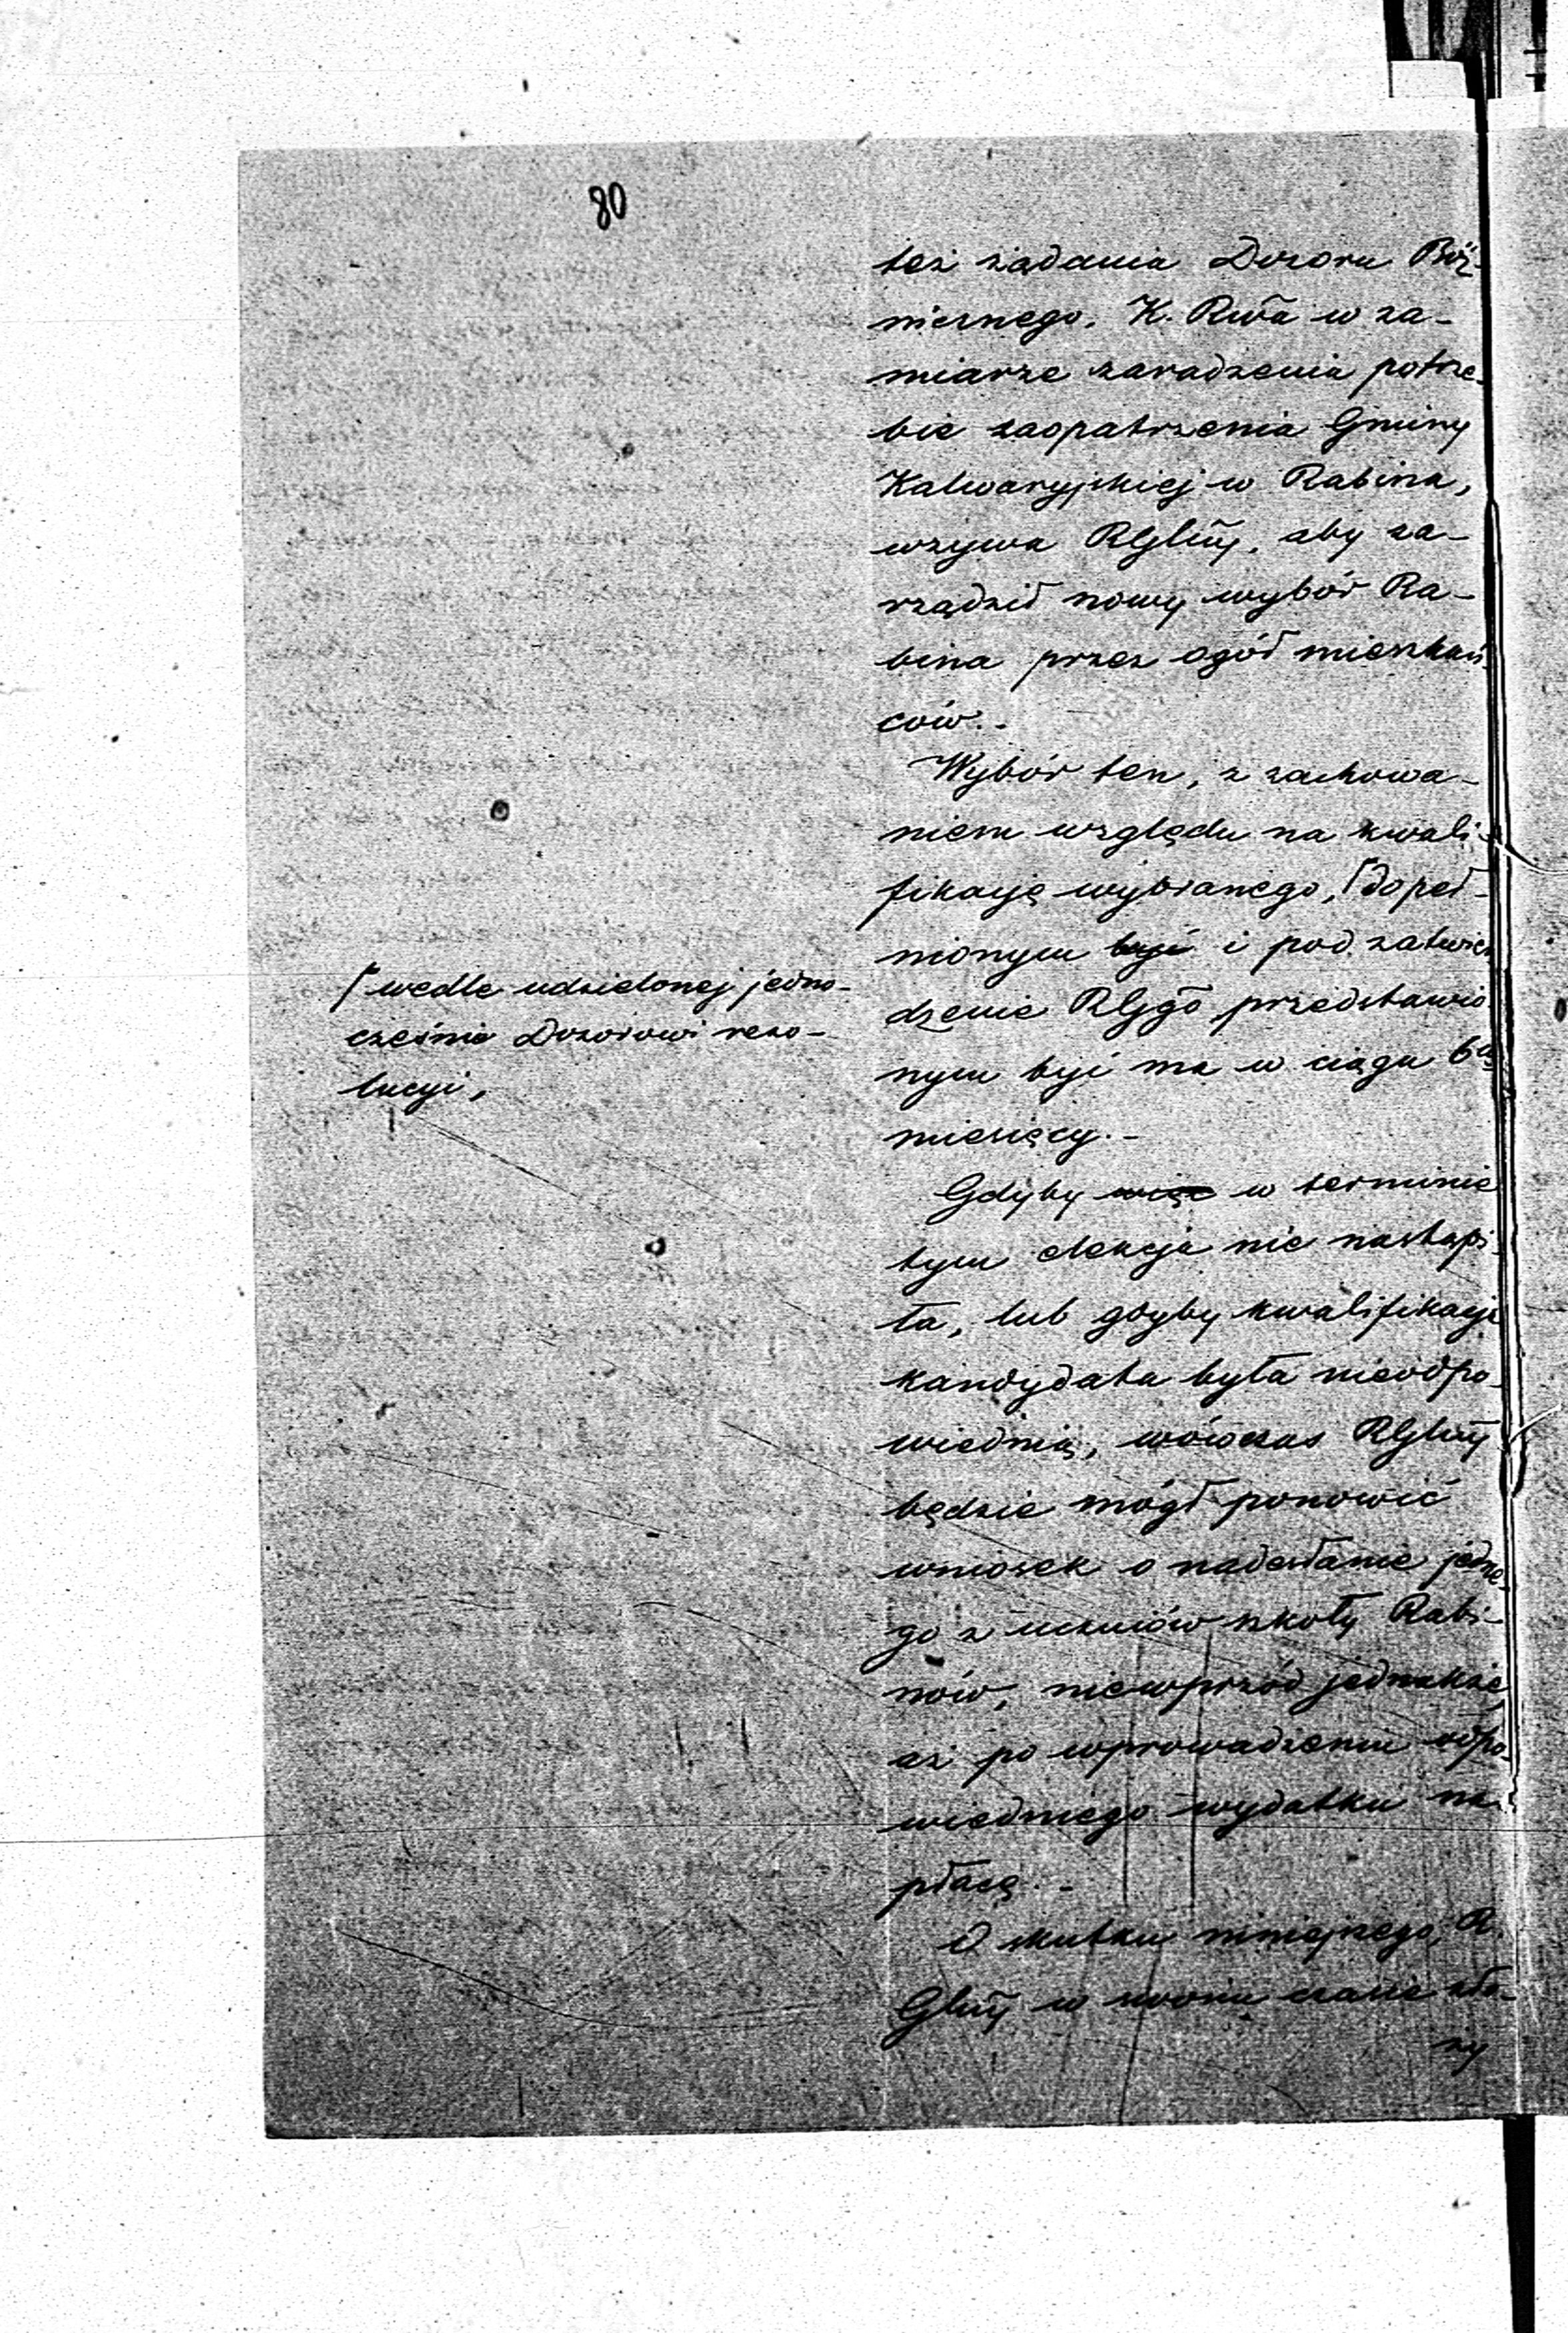 80
też żądania Dozoru Boż-
niczego. K. Rwa w za-
miarze zaradzenia potrze-
bie zaopatrzenia Gminy
Kalwaryjskiej w Rabina,
wzywa RGlny, aby za-
rządził nowy wybór Ra-
bina przez ogół mieszkań-
ców.-
Wybór ten, z zachowa-
niem względu na kwali-
fikacyę wybranego, ⌈dopeł-
nionym być i pod zatwier-
dzenie RGgo przedstawio-
nym być ma w ciągu 6u
miesięcy.-
⌈wedle udzielonej jedno-
cześnie Dozorowi rezo-
lucyi,
Gdyby więc w terminie
tym elekcja nie nastąpi-
ła, lub gdyby kwalifikacja
kandydata była nieodpo-
wiednią, wówczas RGlny
będzie mógł ponowić
wniosek o nadesłanie jedne-
go z uczniów szkoły Rabi-
nów, niewprzód jednakże
aż po wprowadzeniu odpo-
wiedniego wydatku na
płacę.-
O skutku niniejszego, R.
Glny w swoim czasie zło-
ży